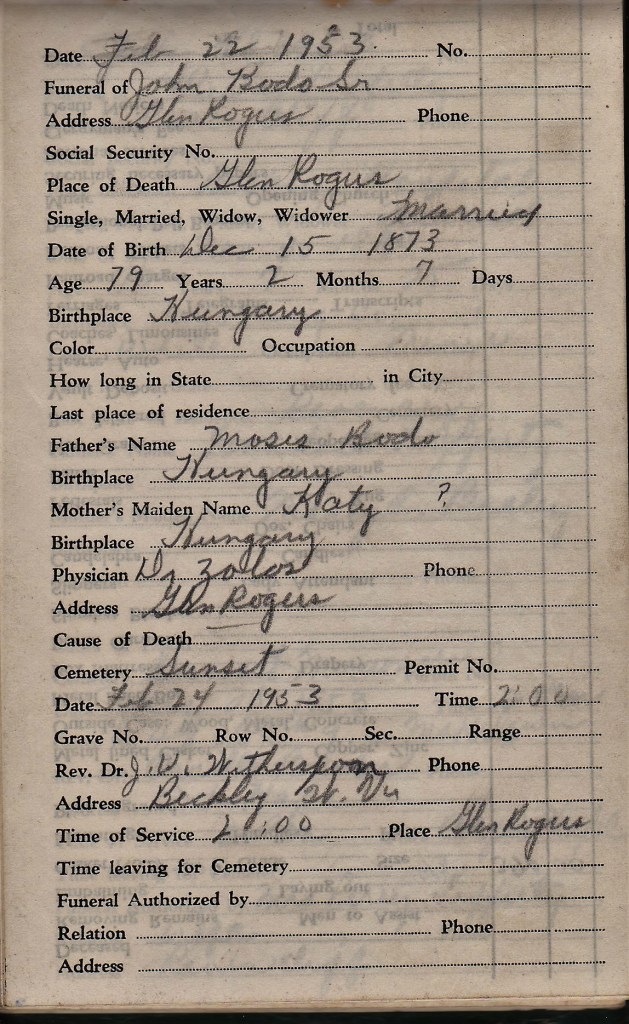 Date Feb 22 1953 No.
Funeral of John Bodo Sr
Address Glen Rogers Phone
Social Security No.
Place of Death Glen Rogers
Single, Married, Widow, Widower Married
Date of Birth Dec 15 1873
Age 79 Years 2 Months 7 Days
Birthplace Hungary
Color Occupation
How long in State in City
Last place of residence
Father's Name Moses Bodo
Birthplace Hungary
Mother's Maiden Name Katy ?
Birthplace Hungary
Physician Dr Phone
Address Glen Rogers
Cause of Death
Cemetery Sunset Permit No.
Date Feb 24 1953 Time 2:00
Grave No. Row No. Sec. Range
Rev. Dr. J. W. Phone
Address Beckley W. Va
Time of Service 2:00 Place Glen Rogers
Time leaving for Cemetery
Funeral Authorized by
Relation Phone
Address